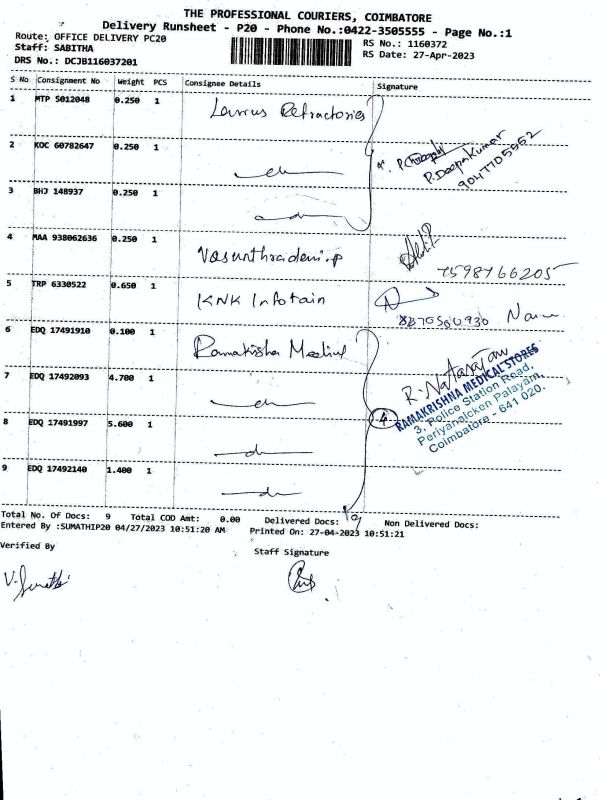 THE PROFESSIONAL COURIERS, COIMBATORE
Delivery Runsheet - P20 - Phone No.:0422-3505555 - Page No.:1
Route: OFFICE DELIVERY PC20 RS No.: 1160372
Staff: SABITHA RS Date: 27-Apr-2023
DRS No.: DCJB116037201
S No Consignment No Weight PCS Consignee Details Signature
1 MTP 5012048 0.250 1 Laurus Refractories
2 KOC 60782647 0.250 1
P. Deepakumar
9047705552
3 BHJ 148937 0.250 1
4 MAA 938062636 0.250 1 Vasunthradevi.p
7598766205
5 TRP 6330522 0.650 1 KNK Infotain
6 EDQ 17491910 0.100 1 Ramakrishna Medical
R. Natarajan
7 EDQ 17492093 4.700 1
RAMAKRISHNA MEDICAL STORES
3, Police Station Road,
Periyanaicken Palayam,
Coimbatore - 641 020.
4
8 EDQ 17491997 5.600 1
9 EDQ 17492140 1.400 1
Total No. Of Docs: 9 Total COD Amt: 0.00 Delivered Docs: 9 Non Delivered Docs:
Entered By :SUMATHIP20 04/27/2023 10:51:20 AM Printed On: 27-04-2023 10:51:21
Verified By Staff Signature